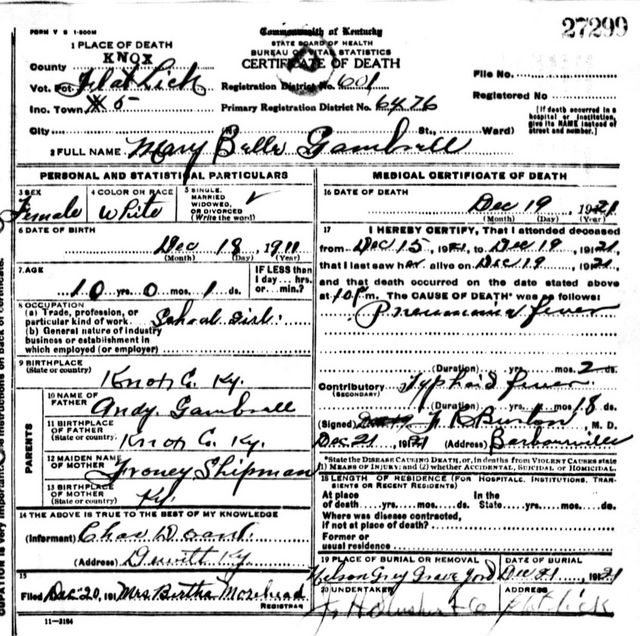 FORM V S 1-500M
Commonwealth of Kentucky
27299
STATE BOARD OF HEALTH
BUREAU OF VITAL STATISTICS
CERTIFICATE OF DEATH
1 PLACE OF DEATH
County KNOX
Vot. Pct. Flat Lick Registration District No. 601
File No.
Inc. Town #5 Primary Registration District No. 6476
Registered No.
City No. St., Ward)
[If death occurred in a hospital or institution, give its NAME instead of street and number.]
2 FULL NAME Mary Belle Gambrell
PERSONAL AND STATISTICAL PARTICULARS
3 SEX Female
4 COLOR OR RACE White
5 SINGLE, MARRIED WIDOWED, OR DIVORCED (Write the word)
6 DATE OF BIRTH
Dec 18, 1911
(Month) (Day) (Year)
7 AGE
10 yrs. 0 mos. 1 ds.
IF LESS than 1 day... hrs. or... min.?
8 OCCUPATION
(a) Trade, profession, or particular kind of work School Girl
(b) General nature of industry business or establishment in which employed (or employer)
9 BIRTHPLACE
(State or country)
Knox Co. Ky.
PARENTS
10 NAME OF FATHER Andy Gambrell
11 BIRTHPLACE OF FATHER (State or country) Knox Co. Ky.
12 MAIDEN NAME OF MOTHER Froney Shipman
13 BIRTHPLACE OF MOTHER (State or country) Ky.
14 THE ABOVE IS TRUE TO THE BEST OF MY KNOWLEDGE
(Informant) Chas D
(Address) Dewitt Ky
15
Filed Dec 20, 191 Mrs. Bertha Morehead
REGISTRAR
11-3184
MEDICAL CERTIFICATE OF DEATH
16 DATE OF DEATH
Dec 19, 1921
(Month) (Day) (Year)
17 I HEREBY CERTIFY, That I attended deceased
from Dec 15, 1921, to Dec 19, 1921,
that I last saw her alive on Dec 19, 1921,
and that death occurred on the date stated above
at 10 P.m. The CAUSE OF DEATH* was as follows:
Pneumonia Fever
(Duration) yrs. mos. 2 ds.
Contributory Typhoid Fever
(SECONDARY)
(Duration) yrs. mos. 18 ds.
(Signed) Burton, M. D.
Dec 21, 1921 (Address) Barbourville
*State the DISEASE CAUSING DEATH, or, in deaths from VIOLENT CAUSES state (1) MEANS OF INJURY; and (2) whether ACCIDENTAL, SUICIDAL or HOMICIDAL.
18 LENGTH OF RESIDENCE (FOR HOSPITALS, INSTITUTIONS, TRANSIENTS OR RECENT RESIDENTS)
At place of death yrs. mos. ds. In the State yrs. mos. ds.
Where was disease contracted, if not at place of death?
Former or usual residence
19 PLACE OF BURIAL OR REMOVAL
Nelson Grey Grave Yard
DATE OF BURIAL
Dec 21, 1921
20 UNDERTAKER
& Co
ADDRESS
Flat Lick